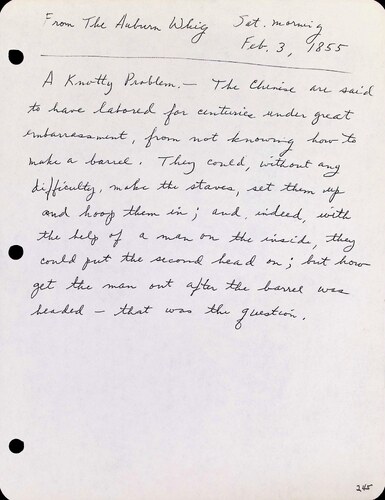 From The Auburn Whig Sat. morning
Feb. 3, 1855
A Knotty Problem. — The Chinese are said
to have labored for centuries under great
embarrassment, from not knowing how to
make a barrel. They could, without any
difficulty, make the staves, set them up
and hoop them in; and, indeed, with
the help of a man on the inside, they
could put the second head on; but how
get the man out after the barrel was
headed — that was the question.
245